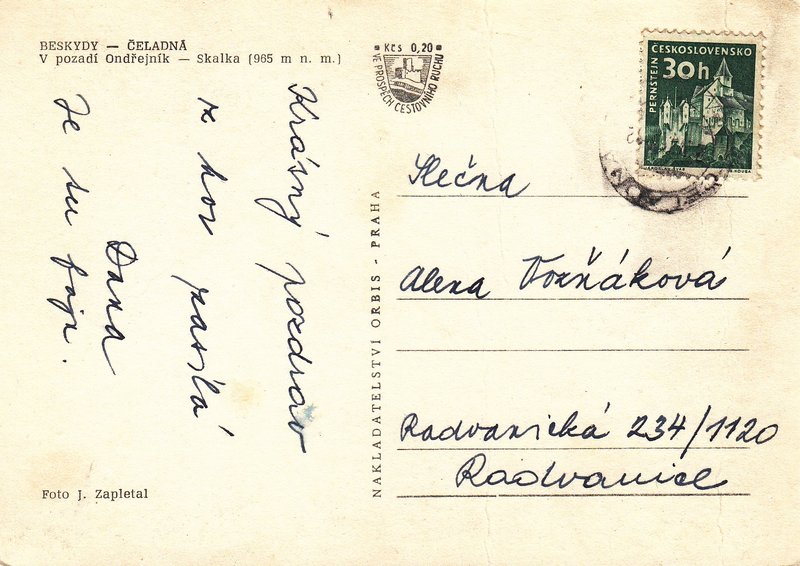 BESKYDY — ČELADNÁ
V pozadí Ondřejník — Skalka (965 m n. m.)
Kčs 0,20
VE PROSPĚCH CESTOVNÍHO RUCHU
ČESKOSLOVENSKO
30h
PERNŠTEJN
Krásný pozdrav
z hor zasílá
Dana
Je tu fajn.
NAKLADATELSTVÍ ORBIS - PRAHA
Slečna
Alena Vozňáková
Radvanická 234/1120
Radvanice
Foto J. Zapletal